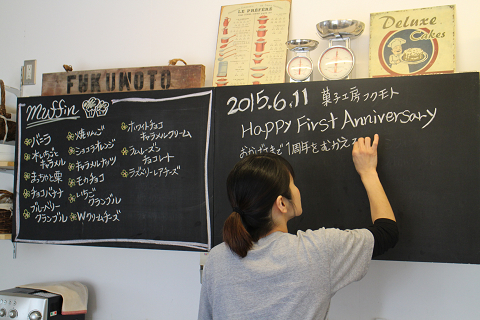 LE PRÉFÉRÉ
Deluxe
Cakes
FUKUMOTO
Muffin
バニラ
木いちごと
キャラメル
まっちゃと栗
チョコバナナ
ブルーベリー
クランブル
焼りんご
ショコラオレンジ
キャラメルナッツ
モカチョコ
いちご
クランブル
Wクリームチーズ
ホワイトチョコ
キャラメルクリーム
ラムレーズン
チョコレート
ラズベリーレアチーズ
2015.6.11 菓子工房フクモト
Happy First Anniversary
おかげさまで1周年をむかえ